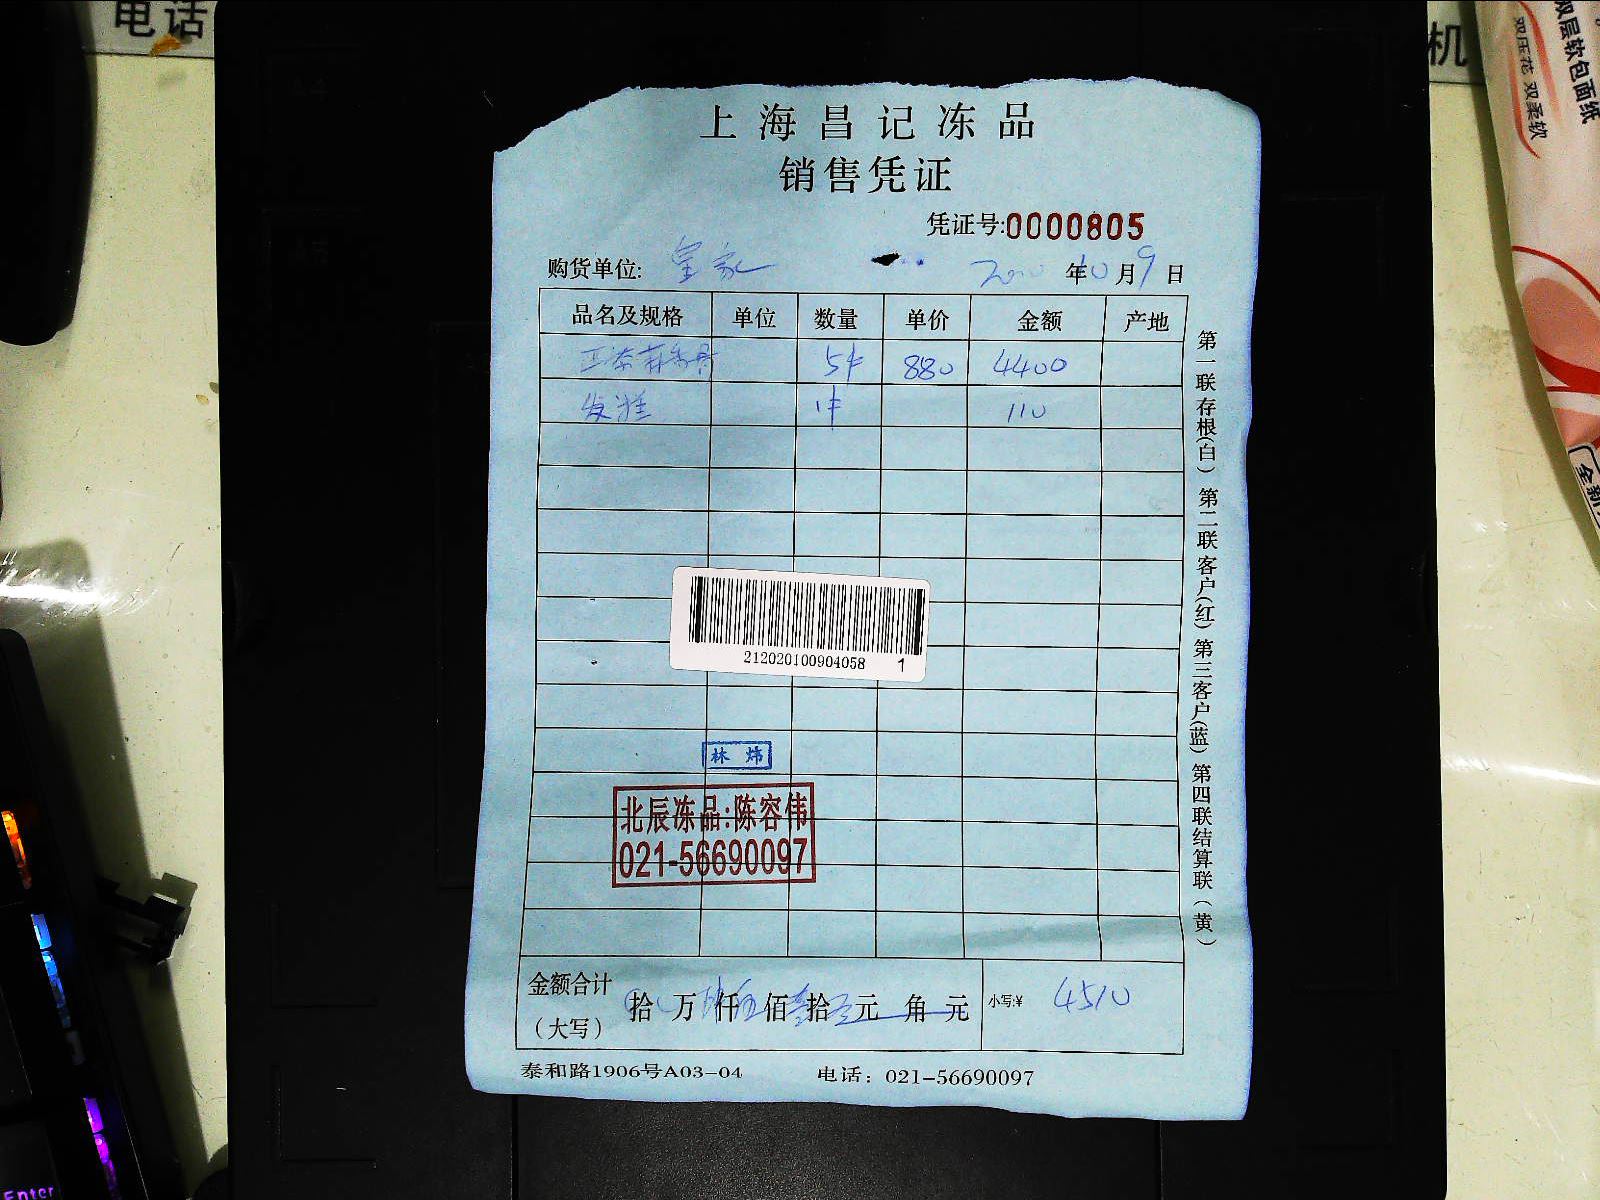 电话
机
双层软包面纸
双压花 双柔软
全新
上海昌记冻品
销售凭证
凭证号:0000805
购货单位: 皇家 年10月9日
品名及规格 单位 数量 单价 金额 产地
5件 880 4400
1件 110
212020100904058 1
林炜
北辰冻品:陈容伟
021-56690097
金额合计(大写) 拾 万 仟 佰 拾 元 角 元 小写:¥ 4510
泰和路1906号A03-04 电话：021-56690097
第一联存根(白) 第二联客户(红) 第三客户(蓝) 第四联结算联(黄)
Enter